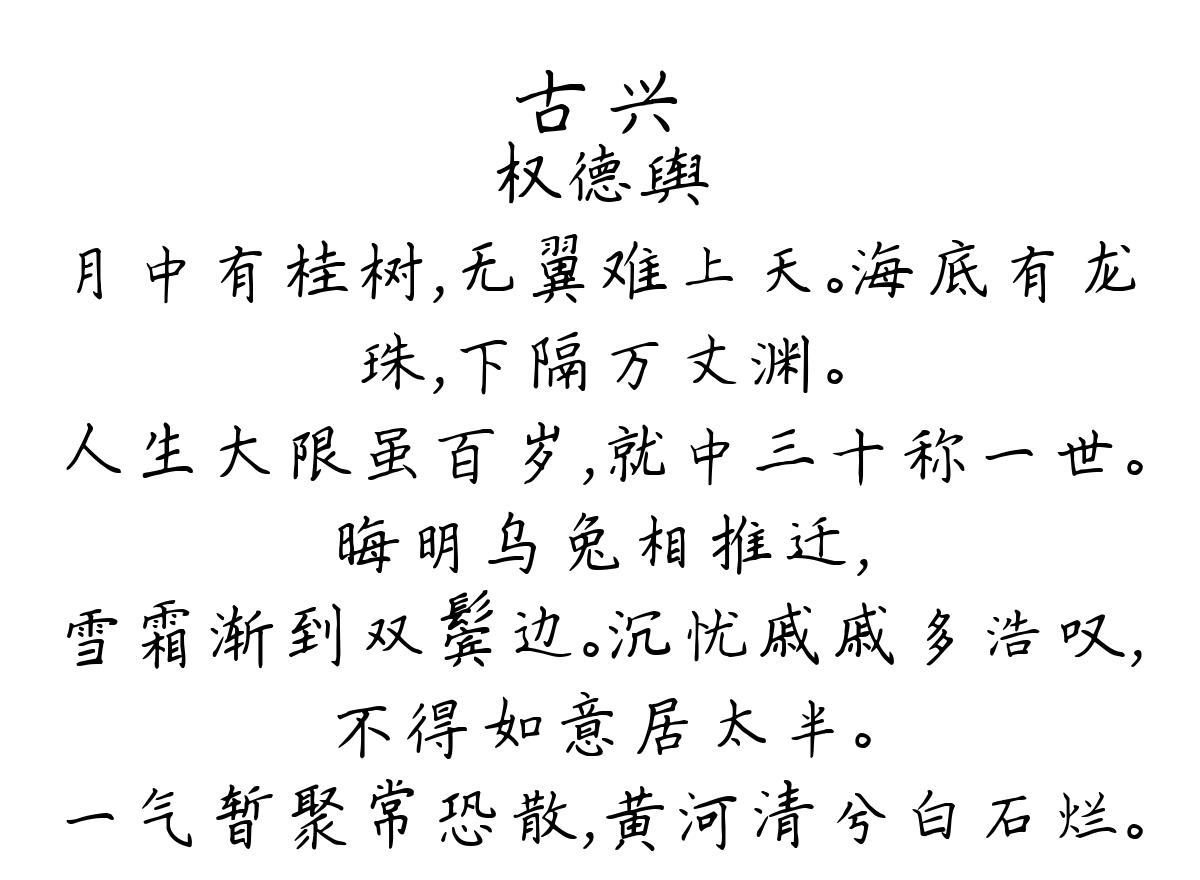 古兴
权德舆
月中有桂树,无翼难上天。海底有龙
珠,下隔万丈渊。
人生大限虽百岁,就中三十称一世。
晦明乌兔相推迁,
雪霜渐到双鬓边。沉忧戚戚多浩叹,
不得如意居太半。
一气暂聚常恐散,黄河清兮白石烂。